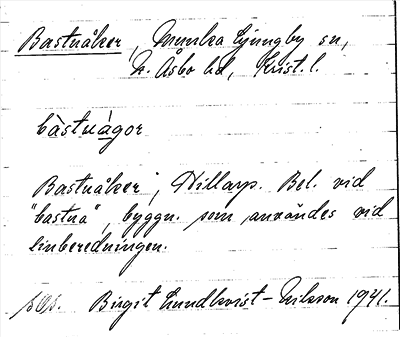 Bastuåker, Munka Ljungby sn,
N. Åsbo hd, Krist. l.
bàstuágor
Bastuåker, Hillarp. Bel. vid
"bastua", byggn. som användes vid
linberedningen.
Birgit Lundkvist-Nilsson 1941.